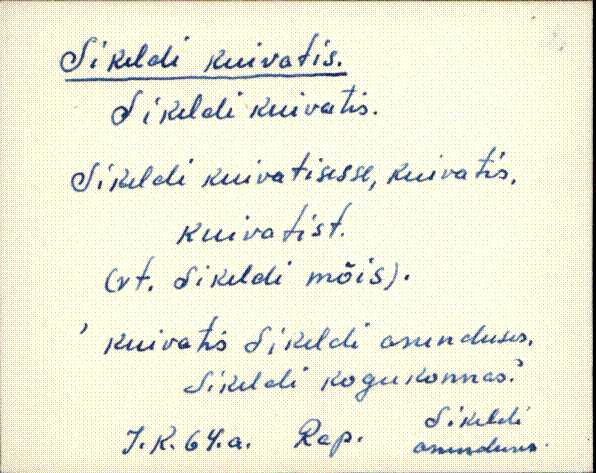 Sikeldi kuivatis.
Sikeldi kuivatis.
Sikeldi kuivatisesse, kuivatis,
kuivatist.
(vt. Sikeldi mõis).
' kuivatis Sikeldi asunduses,
Sikeldi kogukonnas.'
J.K.64.a. Rap. Sikeldi
asunduses.